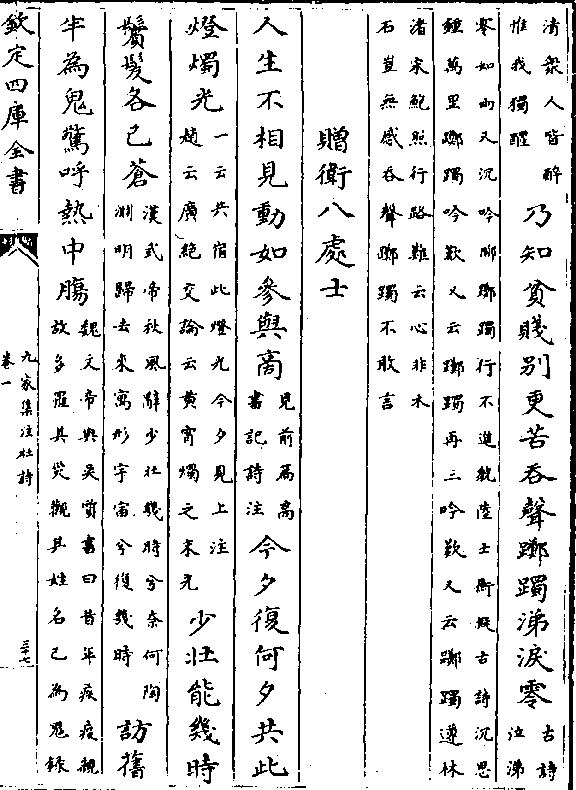 清衆人皆醉
惟我獨醒
乃知貧賤別更苦吞聲躑躅涕淚零
古詩
泣涕
零如雨又沉吟聊躑躅行不進貌陸士衡擬古詩沉思
鍾萬里躑躅吟歎又云躑躅再三吟歎又云躑躅遵林
渚宋鮑照行路難云心非木
石豈無感吞聲躑躅不敢言
贈衛八處士
人生不相見動如參與商
見前篇高
書記詩注
今夕復何夕共此
燈燭光
一云共宿此燈光今夕見上注
趙云廣絕交論云冀宵燭之末光
少壯能幾時
鬢髮各已蒼
漢武帝秋風辭少壯幾時兮奈何陶
淵明歸去來寓形宇宙兮復幾時
訪舊
半為鬼驚呼熱中腸
魏文帝與吳質書曰昔年疾疫親
故多罹其災觀其姓名已為鬼錄
欽定四庫全書
九家集注杜詩
卷一
三十七